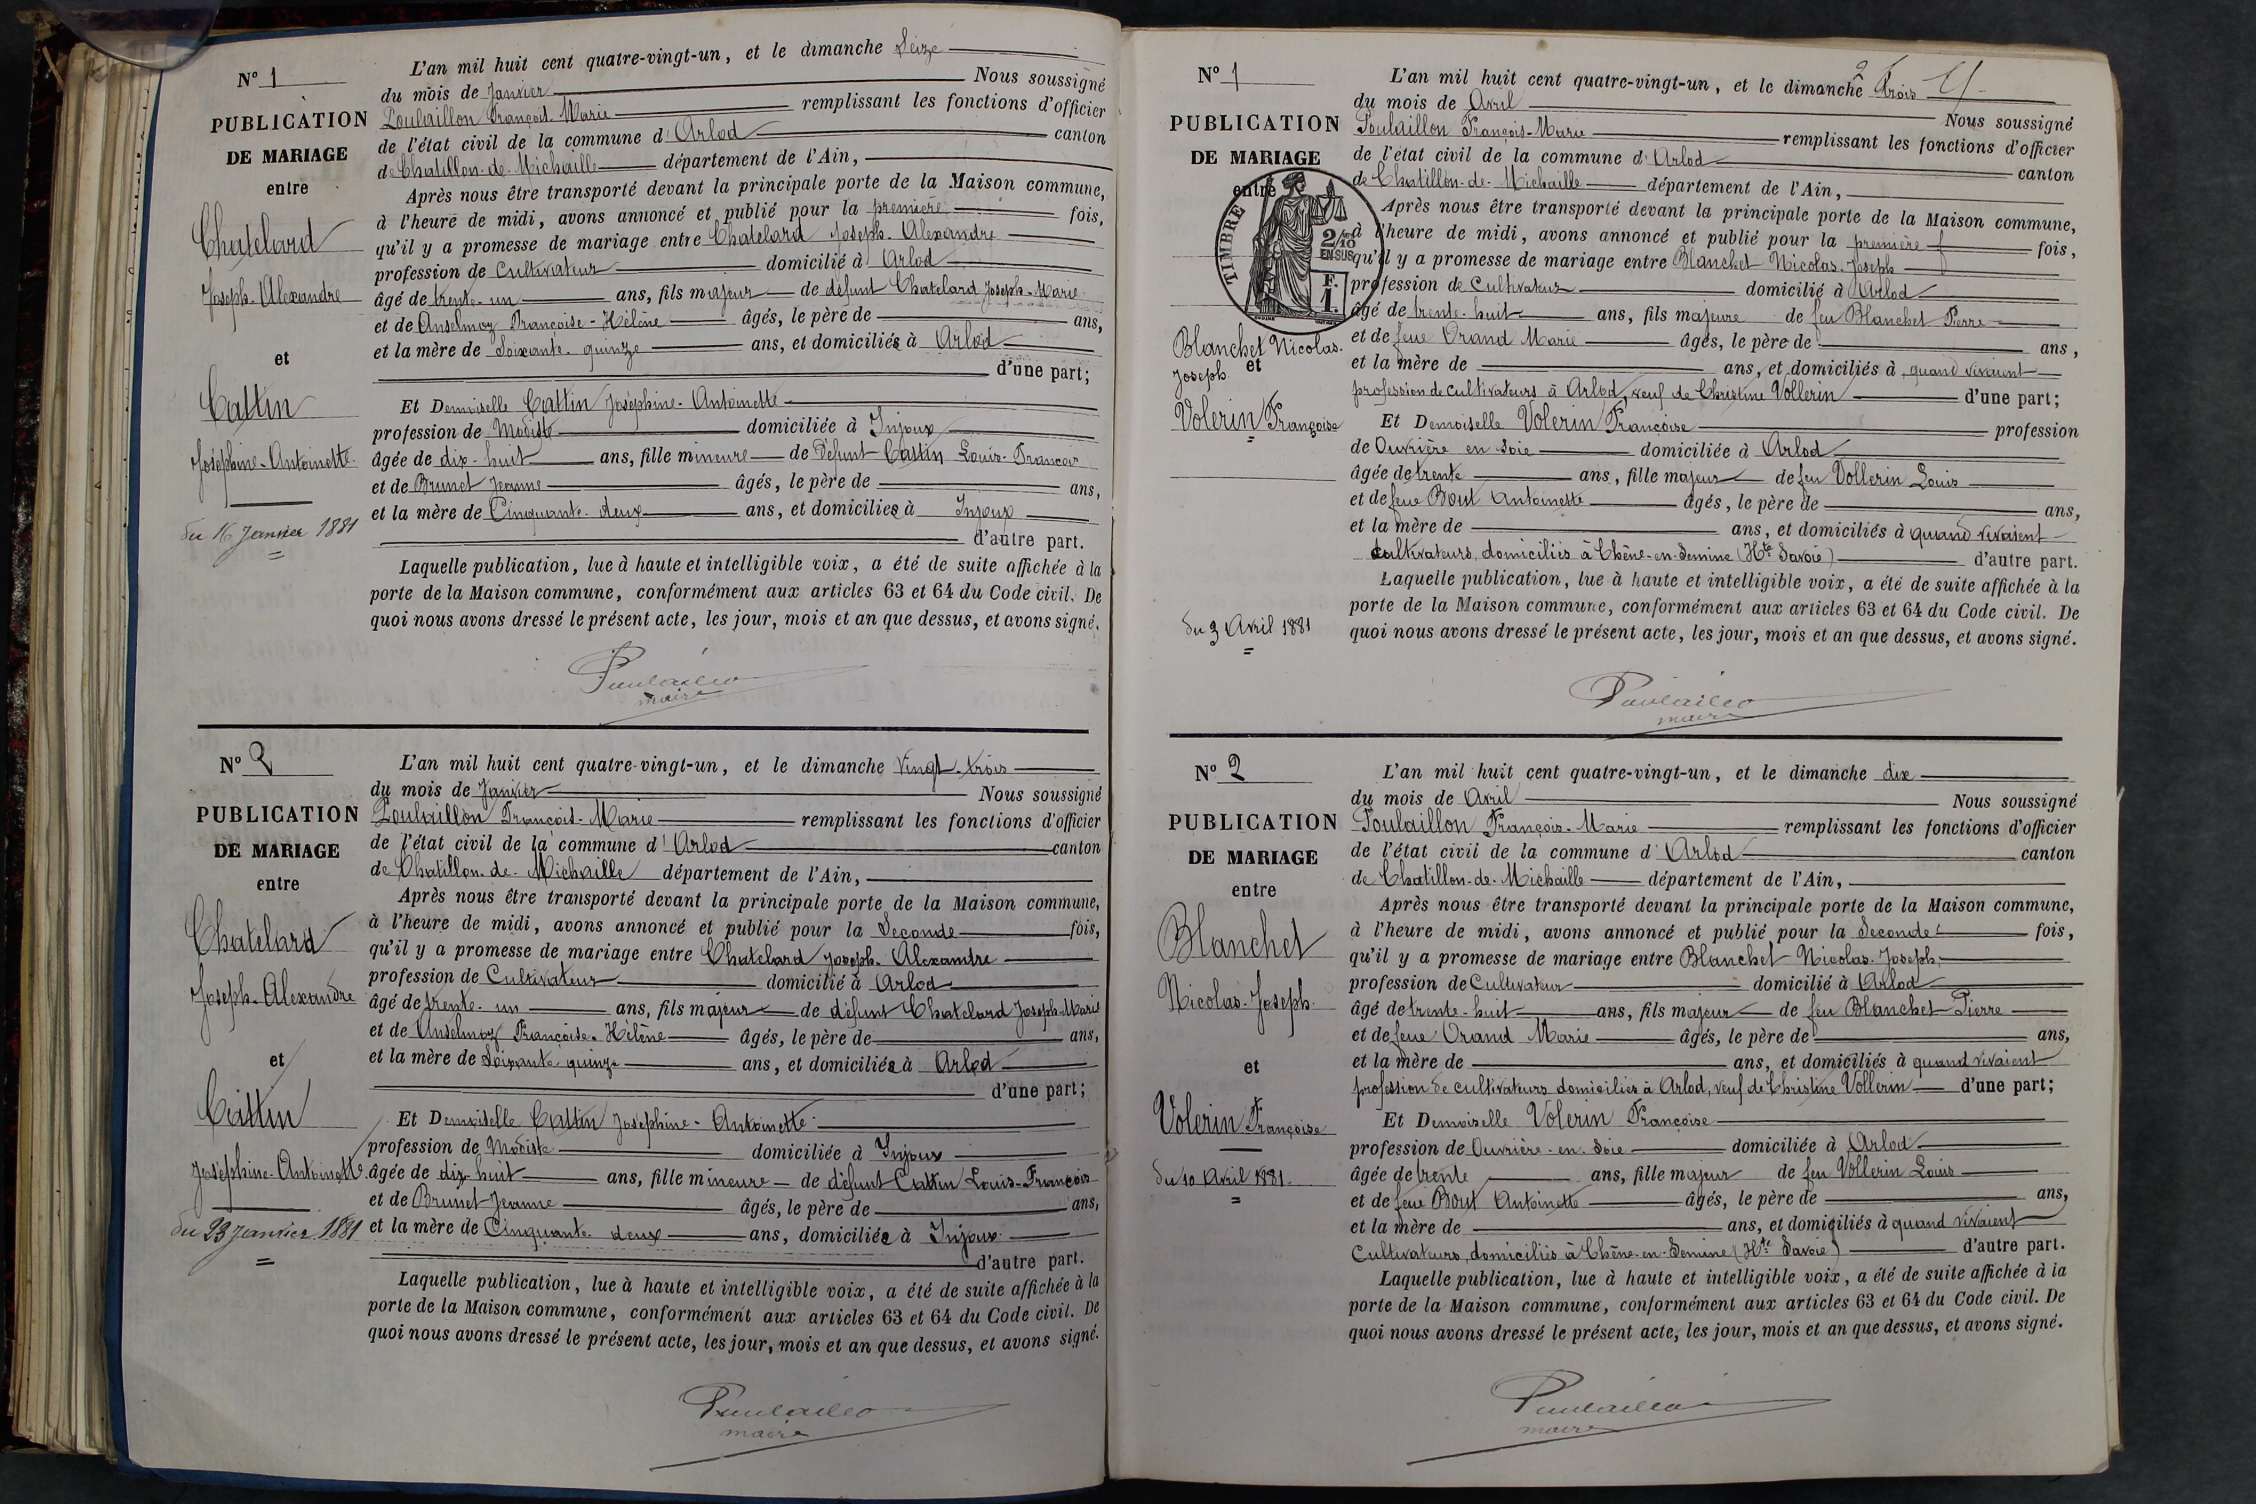 N° 1
PUBLICATION
DE MARIAGE
entre
Chatelard
Joseph-Alexandre
et
Cattin
Joséphine-Antoinette
du 16 Janvier 1881
L'an mil huit cent quatre-vingt-un, et le dimanche Seize
du mois de Janvier Nous soussigné
Poulaillon François-Marie remplissant les fonctions d'officier
de l'état civil de la commune d'Arlod canton
de Chatillon-de-Michaille département de l'Ain,
Après nous être transporté devant la principale porte de la Maison commune,
à l'heure de midi, avons annoncé et publié pour la première fois,
qu'il y a promesse de mariage entre Chatelard Joseph-Alexandre
profession de Cultivateur domicilié à Arlod
âgé de trente-un ans, fils majeur de défunt Chatelard Joseph-Marie
et de Anselmoz Françoise-Hélène âgés, le père de ans,
et la mère de Soixante-quinze ans, et domiciliés à Arlod
d'une part;
Et Demoiselle Cattin Joséphine-Antoinette
profession de Modiste domiciliée à Injoux
âgée de dix-huit ans, fille mineure de Défunt Cattin Louis-François
et de Brunet Jeanne âgés, le père de ans,
et la mère de Cinquante-deux ans, et domiciliés à Injoux
d'autre part.
Laquelle publication, lue à haute et intelligible voix, a été de suite affichée à la
porte de la Maison commune, conformément aux articles 63 et 64 du Code civil. De
quoi nous avons dressé le présent acte, les jour, mois et an que dessus, et avons signé.
maire
N° 2
PUBLICATION
DE MARIAGE
entre
Chatelard
Joseph-Alexandre
et
Cattin
Joséphine-Antoinette
du 23 Janvier 1881
L'an mil huit cent quatre-vingt-un, et le dimanche Vingt-trois
du mois de Janvier Nous soussigné
Poulaillon François-Marie remplissant les fonctions d'officier
de l'état civil de la commune d'Arlod canton
de Chatillon-de-Michaille département de l'Ain,
Après nous être transporté devant la principale porte de la Maison commune,
à l'heure de midi, avons annoncé et publié pour la Seconde fois,
qu'il y a promesse de mariage entre Chatelard Joseph-Alexandre
profession de Cultivateur domicilié à Arlod
âgé de trente-un ans, fils majeur de défunt Chatelard Joseph-Marie
et de Anselmoz Françoise-Hélène âgés, le père de ans,
et la mère de Soixante-quinze ans, et domiciliés à Arlod
d'une part;
Et Demoiselle Cattin Joséphine-Antoinette
profession de Modiste domiciliée à Injoux
âgée de dix-huit ans, fille mineure de défunt Cattin Louis-François
et de Brunet Jeanne âgés, le père de ans,
et la mère de Cinquante-deux ans, domiciliée à Injoux
d'autre part.
Laquelle publication, lue à haute et intelligible voix, a été de suite affichée à la
porte de la Maison commune, conformément aux articles 63 et 64 du Code civil. De
quoi nous avons dressé le présent acte, les jour, mois et an que dessus, et avons signé.
maire
N° 1
PUBLICATION
DE MARIAGE
entre
TIMBRE
2/10
EN SUS
F.
1.
Blanchet Nicolas-
Joseph
et
Volerin Françoise
du 3 Avril 1881
L'an mil huit cent quatre-vingt-un, et le dimanche trois
du mois de Avril Nous soussigné
Poulaillon François-Marie remplissant les fonctions d'officier
de l'état civil de la commune d'Arlod canton
de Chatillon-de-Michaille département de l'Ain,
Après nous être transporté devant la principale porte de la Maison commune,
à l'heure de midi, avons annoncé et publié pour la première fois,
qu'il y a promesse de mariage entre Blanchet Nicolas-Joseph
profession de Cultivateur domicilié à Arlod
âgé de trente-huit ans, fils majeure de feu Blanchet Pierre
et de feue Orand Marie âgés, le père de ans,
et la mère de ans, et domiciliés à quand vivaient
profession de cultivateurs à Arlod, veuf de Christine Vollerin d'une part;
Et Demoiselle Volerin Françoise profession
de Ouvrière en soie domiciliée à Arlod
âgée de trente ans, fille majeur de feu Vollerin Louis
et de feue Bout Antoinette âgés, le père de ans,
et la mère de ans, et domiciliés à quand vivaient
cultivateurs, domiciliés à Chêne-en-Semine (Hte Savoie) d'autre part.
Laquelle publication, lue à haute et intelligible voix, a été de suite affichée à la
porte de la Maison commune, conformément aux articles 63 et 64 du Code civil. De
quoi nous avons dressé le présent acte, les jour, mois et an que dessus, et avons signé.
maire
N° 2
PUBLICATION
DE MARIAGE
entre
Blanchet
Nicolas-Joseph
et
Volerin Françoise
du 10 Avril 1881.
L'an mil huit cent quatre-vingt-un, et le dimanche dix
du mois de Avril Nous soussigné
Poulaillon François-Marie remplissant les fonctions d'officier
de l'état civil de la commune d'Arlod canton
de Chatillon-de-Michaille département de l'Ain,
Après nous être transporté devant la principale porte de la Maison commune,
à l'heure de midi, avons annoncé et publié pour la Seconde fois,
qu'il y a promesse de mariage entre Blanchet Nicolas-Joseph
profession de Cultivateur domicilié à Arlod
âgé de trente-huit ans, fils majeur de feu Blanchet Pierre
et de feue Orand Marie âgés, le père de ans,
et la mère de ans, et domiciliés à quand vivaient
profession de cultivateurs domiciliés à Arlod, veuf de Christine Vollerin d'une part;
Et Demoiselle Volerin Françoise
profession de Ouvrière-en-Soie domiciliée à Arlod
âgée de trente ans, fille majeur de feu Vollerin Louis
et de feue Bout Antoinette âgés, le père de ans,
et la mère de ans, et domiciliés à quand vivaient
Cultivateurs, domiciliés à Chêne-en-Semine (Hte Savoie) d'autre part.
Laquelle publication, lue à haute et intelligible voix, a été de suite affichée à la
porte de la Maison commune, conformément aux articles 63 et 64 du Code civil. De
quoi nous avons dressé le présent acte, les jour, mois et an que dessus, et avons signé.
maire